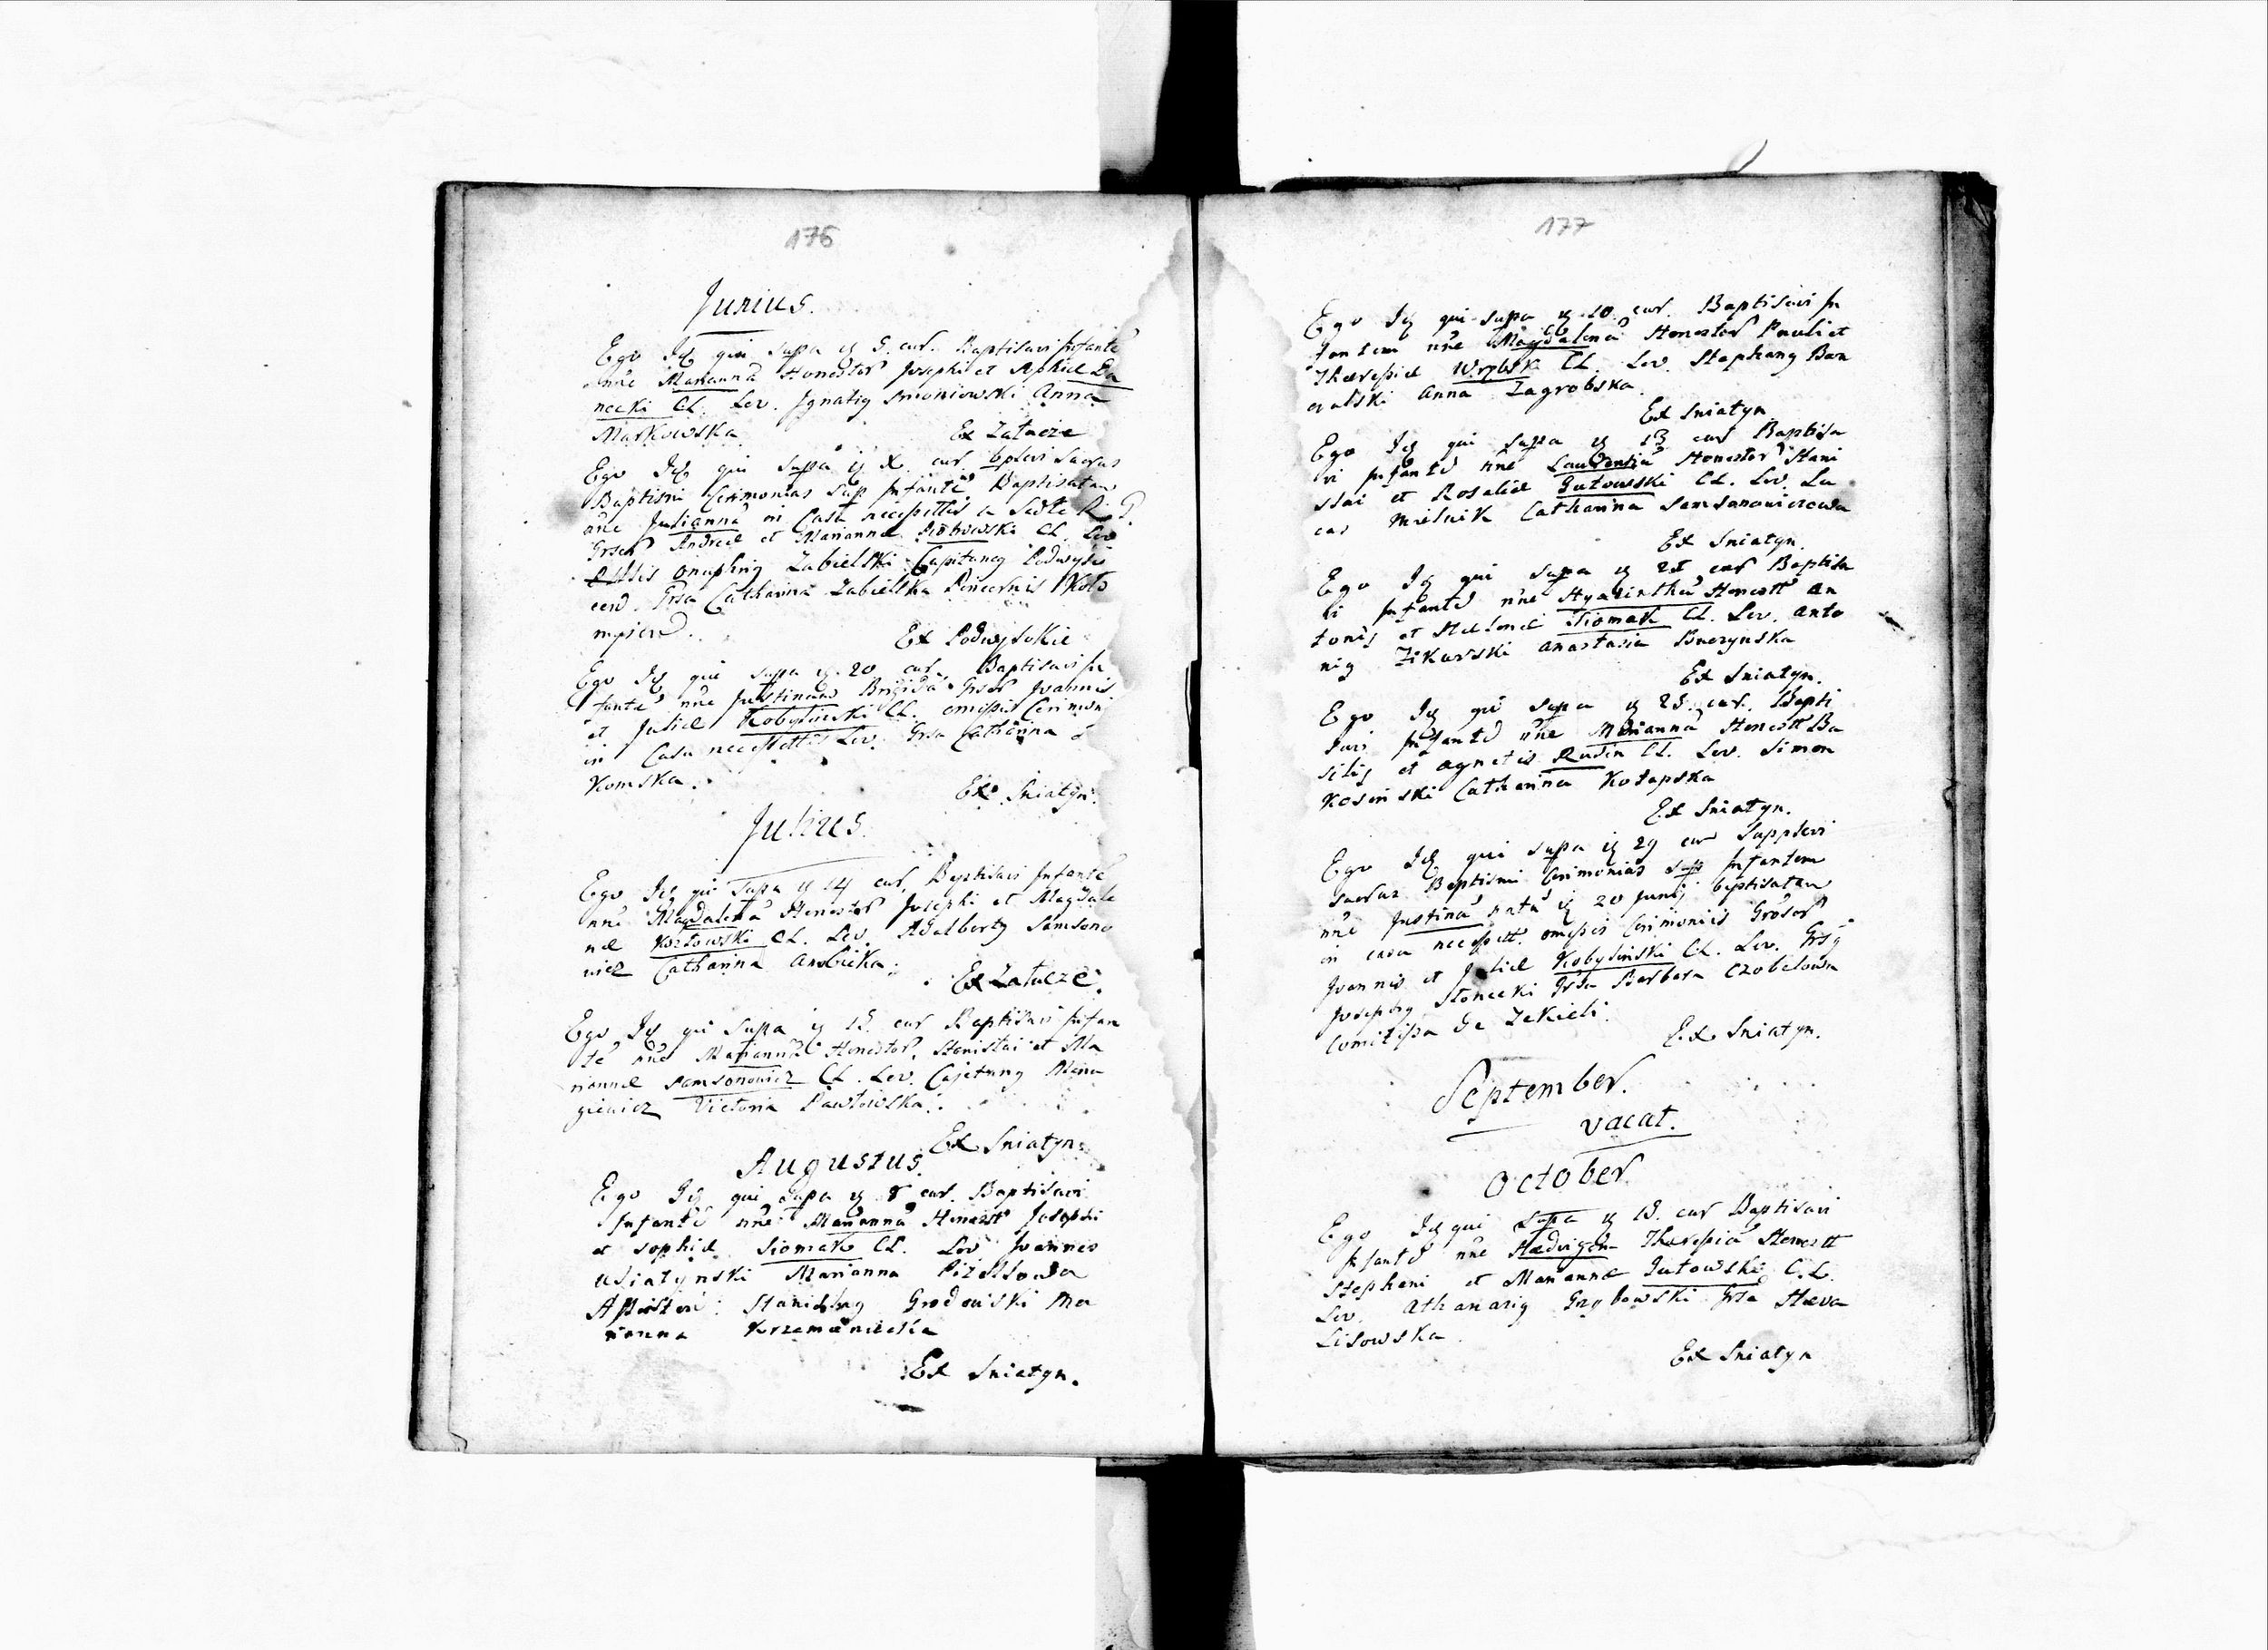 176
Junius.
Ego Idq qui supa q 5. cur. Baptisavi Infante
nne Marianna Honestor Josephi et Sophiæ Da
necki CL. Lev. Ignatiq Smoniowski Anna
Markowska
Ex Załucze
Ego Idq qui supa q X cur. supplevi Sacras
Baptismi Cerimonias sup Infante Baptisatam
nne Julianna in Casu necessittis a Sudte R. G.
Grsor Andreæ et Marianna Piotrowski CL. Lev
Onuphriq Zabielski Capitaneq Podwyso
cens. Grsa Catharina Zabielska Pincernis Koło
mpien.
Ex Podwysokie
Ego Idq qui supa q 20 cur. Baptisavi In
fante nne Justinam Brigida Grsor Joannis
et Juliæ Kobyliński CL. omissis Cerimoni
in Casu necessittis Lev. Grsa Catharina
Komska.
Ex Sniatyn.
Julius.
Ego Idq qui supa q 14 cur. Baptisavi Infante
nne Magdalena Honestor Josephi et Magdale
næ Kozłowski CL. Lev. Adalbertq Samsono
wicz Catharina
Ex Załucze.
Ego Idq qui supa q 15. cur Baptisavi Infan
te nne Marianna Honestor. Stanislai et Ma
riannæ Samsonowicz CL. Lev. Cajetanq
giewicz Victoria Pawłowska.
Ex Sniatyn.
Augustus.
Ego Idq qui supa q 8 cur. Baptisavi
Infante nne Marianna Honestt Josephi
et Sophiæ Siomak CL. Lev Joannes
Usiatynski Marianna
Assisten: Stanislaq Grodowiski Ma
rianna Krzemieniecka
Ex Sniatyn.
177
Ego Idq qui supa q 10. cur. Baptisavi In
fantem nne Magdalena Honestor Pauli et
Theresiæ CL. Lev. Stephanq Bon
Anna Zagrobska.
Ex Sniatyn
Ego Idq qui supa q 13 cur Baptisa
vi Infante nne Laurentia Honestor Stani
slai et Rosaliæ Gutowski CL. Lev. Lu
cas Mielnik Catharina Samsonowiczowa
Ex Sniatyn.
Ego Idq qui supa q 25 cur Baptisa
vi Infante nne Hyacintha Honestt An
tonij et Helenæ Siomak CL. Lev. Anto
niq Zikurski Anastasia Buczynska
Ex Sniatyn.
Ego Idq qui supa q 25. cur. Bapti
savi Infante nne Marianna Honestt Ba
silij et Agnetis Rudin CL. Lev. Simon
Kosinski Catharina Kołapska
Ex Sniatyn.
Ego Idq qui supa q 29 cur Supplevi
sacras Baptismi Cerimonias sup Infantem
nne Justina nata q 20 Junij baptisatam
in casu necessitt. omissis Cerimoniis Grosor
Joannis et Juliæ Kobyliński CL. Lev. Grsq
Josephq Słonecki Grsa Barbara Czobelowa
Comitissa de Zekieli.
Ex Sniatyn.
September.
vacat.
October.
Ego Idq qui supa q 15. cur Baptisavi
Infante nne Hedvigem Theresia Honestt
Stephani et Mariannæ Gutowski C.L.
Lev. Athanasiq Grybowski Grsa Hæva
Lisowska.
Ex Sniatyn